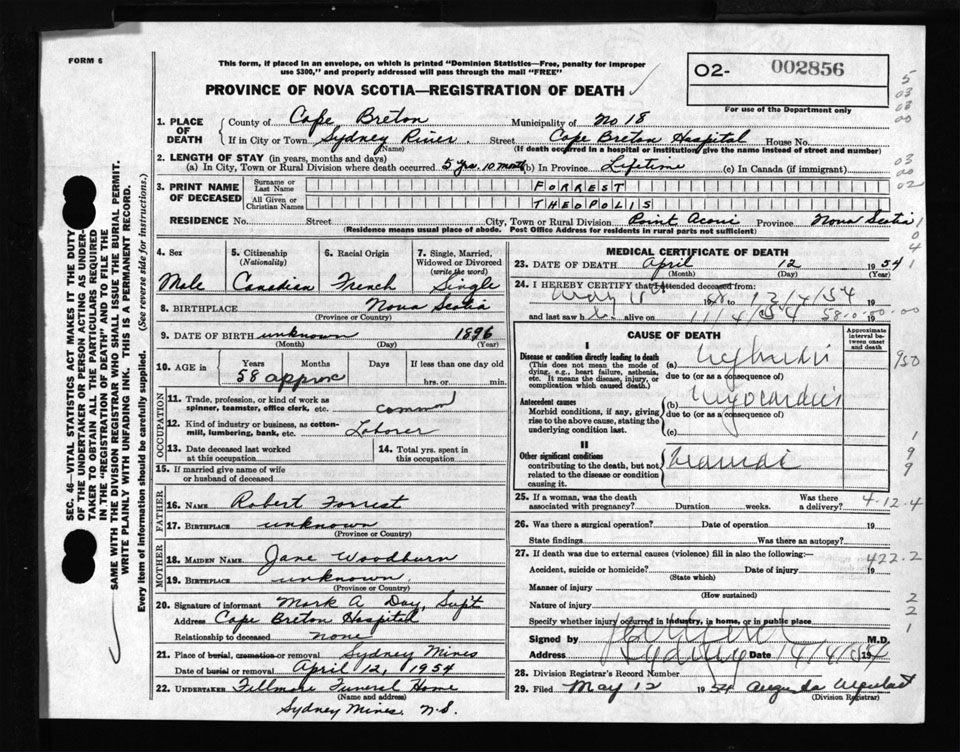 FORM 6
This form, if placed in an envelope, on which is printed "Dominion Statistics—Free, penalty for improper
use $300," and properly addressed will pass through the mail "FREE"
PROVINCE OF NOVA SCOTIA—REGISTRATION OF DEATH
O2- 002856
For use of the Department only
SEC. 46-VITAL STATISTICS ACT MAKES IT THE DUTY
OF THE UNDERTAKER OR PERSON ACTING AS UNDER-
TAKER TO OBTAIN ALL THE PARTICULARS REQUIRED
IN THE "REGISTRATION OF DEATH" AND TO FILE THE
SAME WITH THE DIVISION REGISTRAR WHO SHALL ISSUE THE BURIAL PERMIT.
WRITE PLAINLY WITH UNFADING INK. THIS IS A PERMANENT RECORD.
Every item of information should be carefully supplied. (See reverse side for Instructions.)
1. PLACE OF DEATH
County of Cape Breton Municipality of No 18
If in City or Town Sydney River Street Cape Breton Hospital House No.
(Name) (If death occurred in a hospital or institution give the name instead of street and number)
2. LENGTH OF STAY (in years, months and days)
(a) In City, Town or Rural Division where death occurred 5 yrs. 10 month (b) In Province Lifetime (c) In Canada (if immigrant)
3. PRINT NAME OF DECEASED
Surname or Last Name FORREST
All Given or Christian Names THEOPOLIS
RESIDENCE No. Street City, Town or Rural Division Point Aconi Province Nova Scotia
(Residence means usual place of abode. Post Office Address for residents in rural parts not sufficient)
4. Sex
Male
5. Citizenship (Nationality)
Canadian
6. Racial Origin
French
7. Single, Married, Widowed or Divorced (write the word)
Single
8. BIRTHPLACE Nova Scotia
(Province or Country)
9. DATE OF BIRTH unknown 1896
(Month) (Day) (Year)
10. AGE in Years Months Days If less than one day old
58 approx hrs. or min.
OCCUPATION
11. Trade, profession, or kind of work as
spinner, teamster, office clerk, etc. common
12. Kind of industry or business, as cotton-
mill, lumbering, bank, etc. Laborer
13. Date deceased last worked
at this occupation
14. Total yrs. spent in
this occupation
15. If married give name of wife
or husband of deceased
FATHER
16. NAME Robert Forrest
17. BIRTHPLACE unknown
(Province or Country)
MOTHER
18. MAIDEN NAME Jane Woodburn
19. BIRTHPLACE unknown
(Province or Country)
20. Signature of informant Mark A Day, Sup't
Address Cape Breton Hospital
Relationship to deceased None
21. Place of burial, cremation or removal Sydney Mines
Date of burial or removal April 12, 1954
22. UNDERTAKER Fillmore Funeral Home
(Name and address)
Sydney Mines N.S.
MEDICAL CERTIFICATE OF DEATH
23. DATE OF DEATH April 12 1954
(Month) (Day) (Year)
24. I HEREBY CERTIFY that I attended deceased from:
May 12/4/54 19
and last saw h alive on 11/4/54 19
58-0-00-00
CAUSE OF DEATH
Approximate interval between onset and death
I
Disease or condition directly leading to death
(This does not mean the mode of
dying, e.g., heart failure, asthenia,
etc. It means the disease, injury, or
complication which caused death.)
(a)
due to (or as a consequence of)
Antecedent causes
Morbid conditions, if any, giving
rise to the above cause, stating the
underlying condition last.
(b) Myocarditis
due to (or as a consequence of)
(c)
II
Other significant conditions
contributing to the death, but not
related to the disease or condition
causing it.
25. If a woman, was the death
associated with pregnancy? Duration weeks. Was there a delivery?
4-12-4
26. Was there a surgical operation? Date of operation 19
State findings Was there an autopsy?
27. If death was due to external causes (violence) fill in also the following:
422.2
Accident, suicide or homicide? Date of injury 19
(State which)
Manner of injury
(How sustained)
Nature of injury
Specify whether injury occurred in industry, in home, or in public place
Signed by M.D.
Address Sydney Date 14/4/54 19
28. Division Registrar's Record Number
29. Filed May 12 1954
(Division Registrar)
5
03
03
00
03
00
02
1
0
4
950
1
9
9
2
2
1